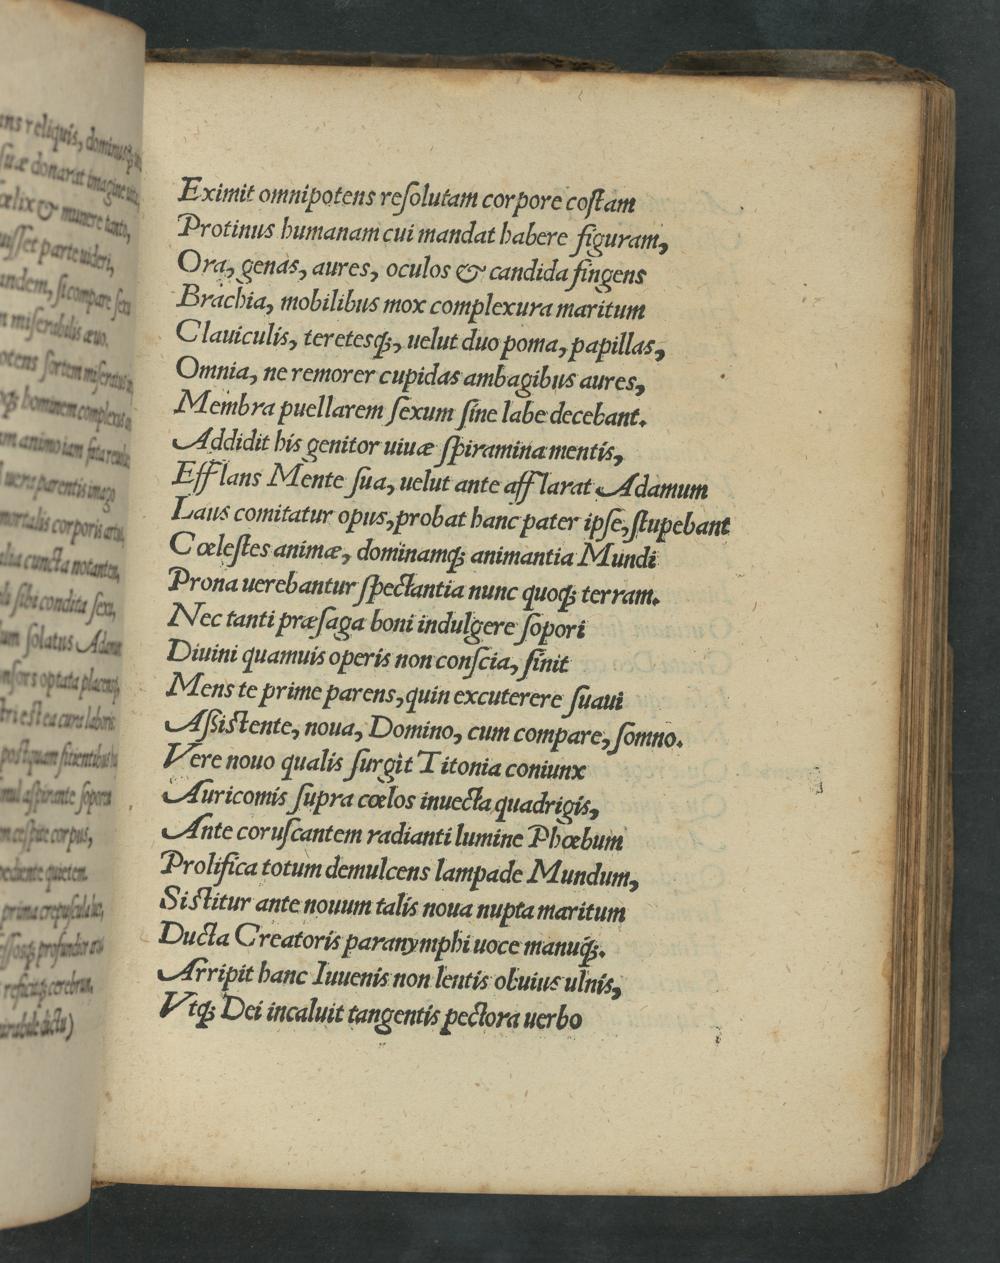 ns reliquis,
suæ donarat imagine
felix & munere tanto,
uisset parte uideri,
si compare sexu
miserabilis æuo.
sortem miseratus
hominem complexus
animo iam fata
uera parentis imago
mortalis corporis artus,
cuncta notantem,
sibi condita sexu,
solatus Adamum
optata placensq;,
est ea cura laboris
postquam sitientibus
aspirante sopora
cespite corpus,
quietem
prima crepuscula lucis,
profundior
cerebrum,
mirabile dictu)
Eximit omnipotens resolutam corpore costam
Protinus humanam cui mandat habere figuram,
Ora, genas, aures, oculos & candida fingens
Brachia, mobilibus mox complexura maritum
Clauiculis, teretesq;, uelut duo poma, papillas,
Omnia, ne remorer cupidas ambagibus aures,
Membra puellarem sexum sine labe decebant.
Addidit his genitor uiuæ spiramina mentis,
Efflans Mente sua, uelut ante afflarat Adamum
Laus comitatur opus, probat hanc pater ipse, stupebant
Cœlestes animæ, dominamq; animantia Mundi
Prona uerebantur spectantia nunc quoq; terram.
Nec tanti præsaga boni indulgere sopori
Diuini quamuis operis non conscia, sinit
Mens te prime parens, quin excuterere suaui
Assistente, noua, Domino, cum compare, somno.
Vere nouo qualis surgit Titonia coniunx
Auricomis supra cœlos inuecta quadrigis,
Ante coruscantem radianti lumine Phœbum
Prolifica totum demulcens lampade Mundum,
Sistitur ante nouum talis noua nupta maritum
Ducta Creatoris paranymphi uoce manuq;.
Arripit hanc Iuuenis non lentis obuius ulnis,
Vtq; Dei incaluit tangentis pectora uerbo